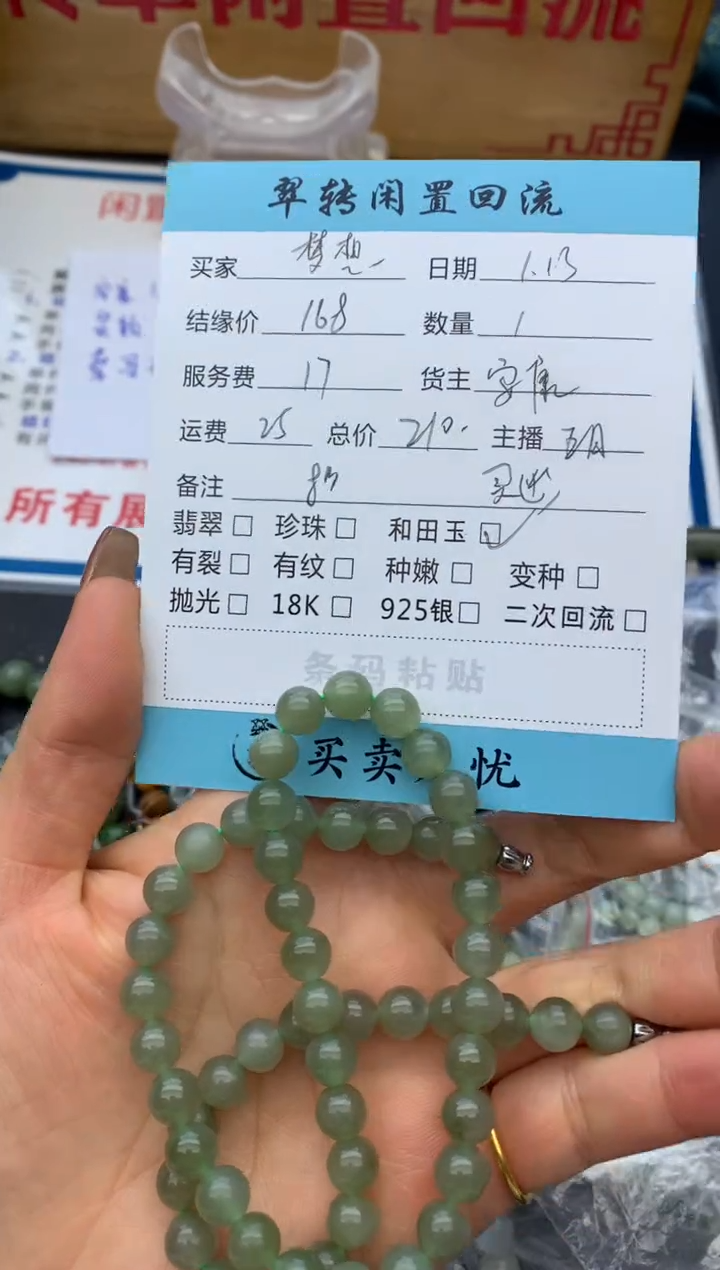 闲置回流
翠转闲置回流
买家 梦想 日期 1.13
结缘价 168 数量 1
服务费 17 货主
运费 25 总价 210. 主播 五月
备注
翡翠 □ 珍珠 □ 和田玉 ☑
有裂 □ 有纹 □ 种嫩 □ 变种 □
抛光 □ 18K □ 925银 □ 二次回流 □
条码粘贴
买卖 忧
闲置
所有展